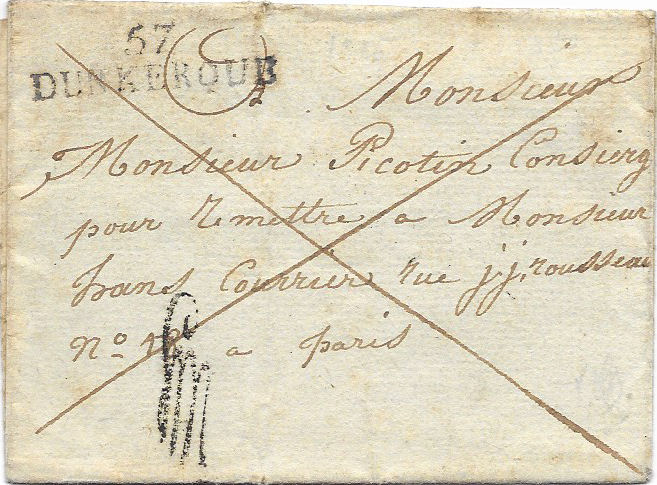 57
DUNKERQUE
Monsieur
Monsieur Picotin Consierg
pour Remettre a Monsieur
hans Courrier rue j.j. rousseau
n.o 18 a paris